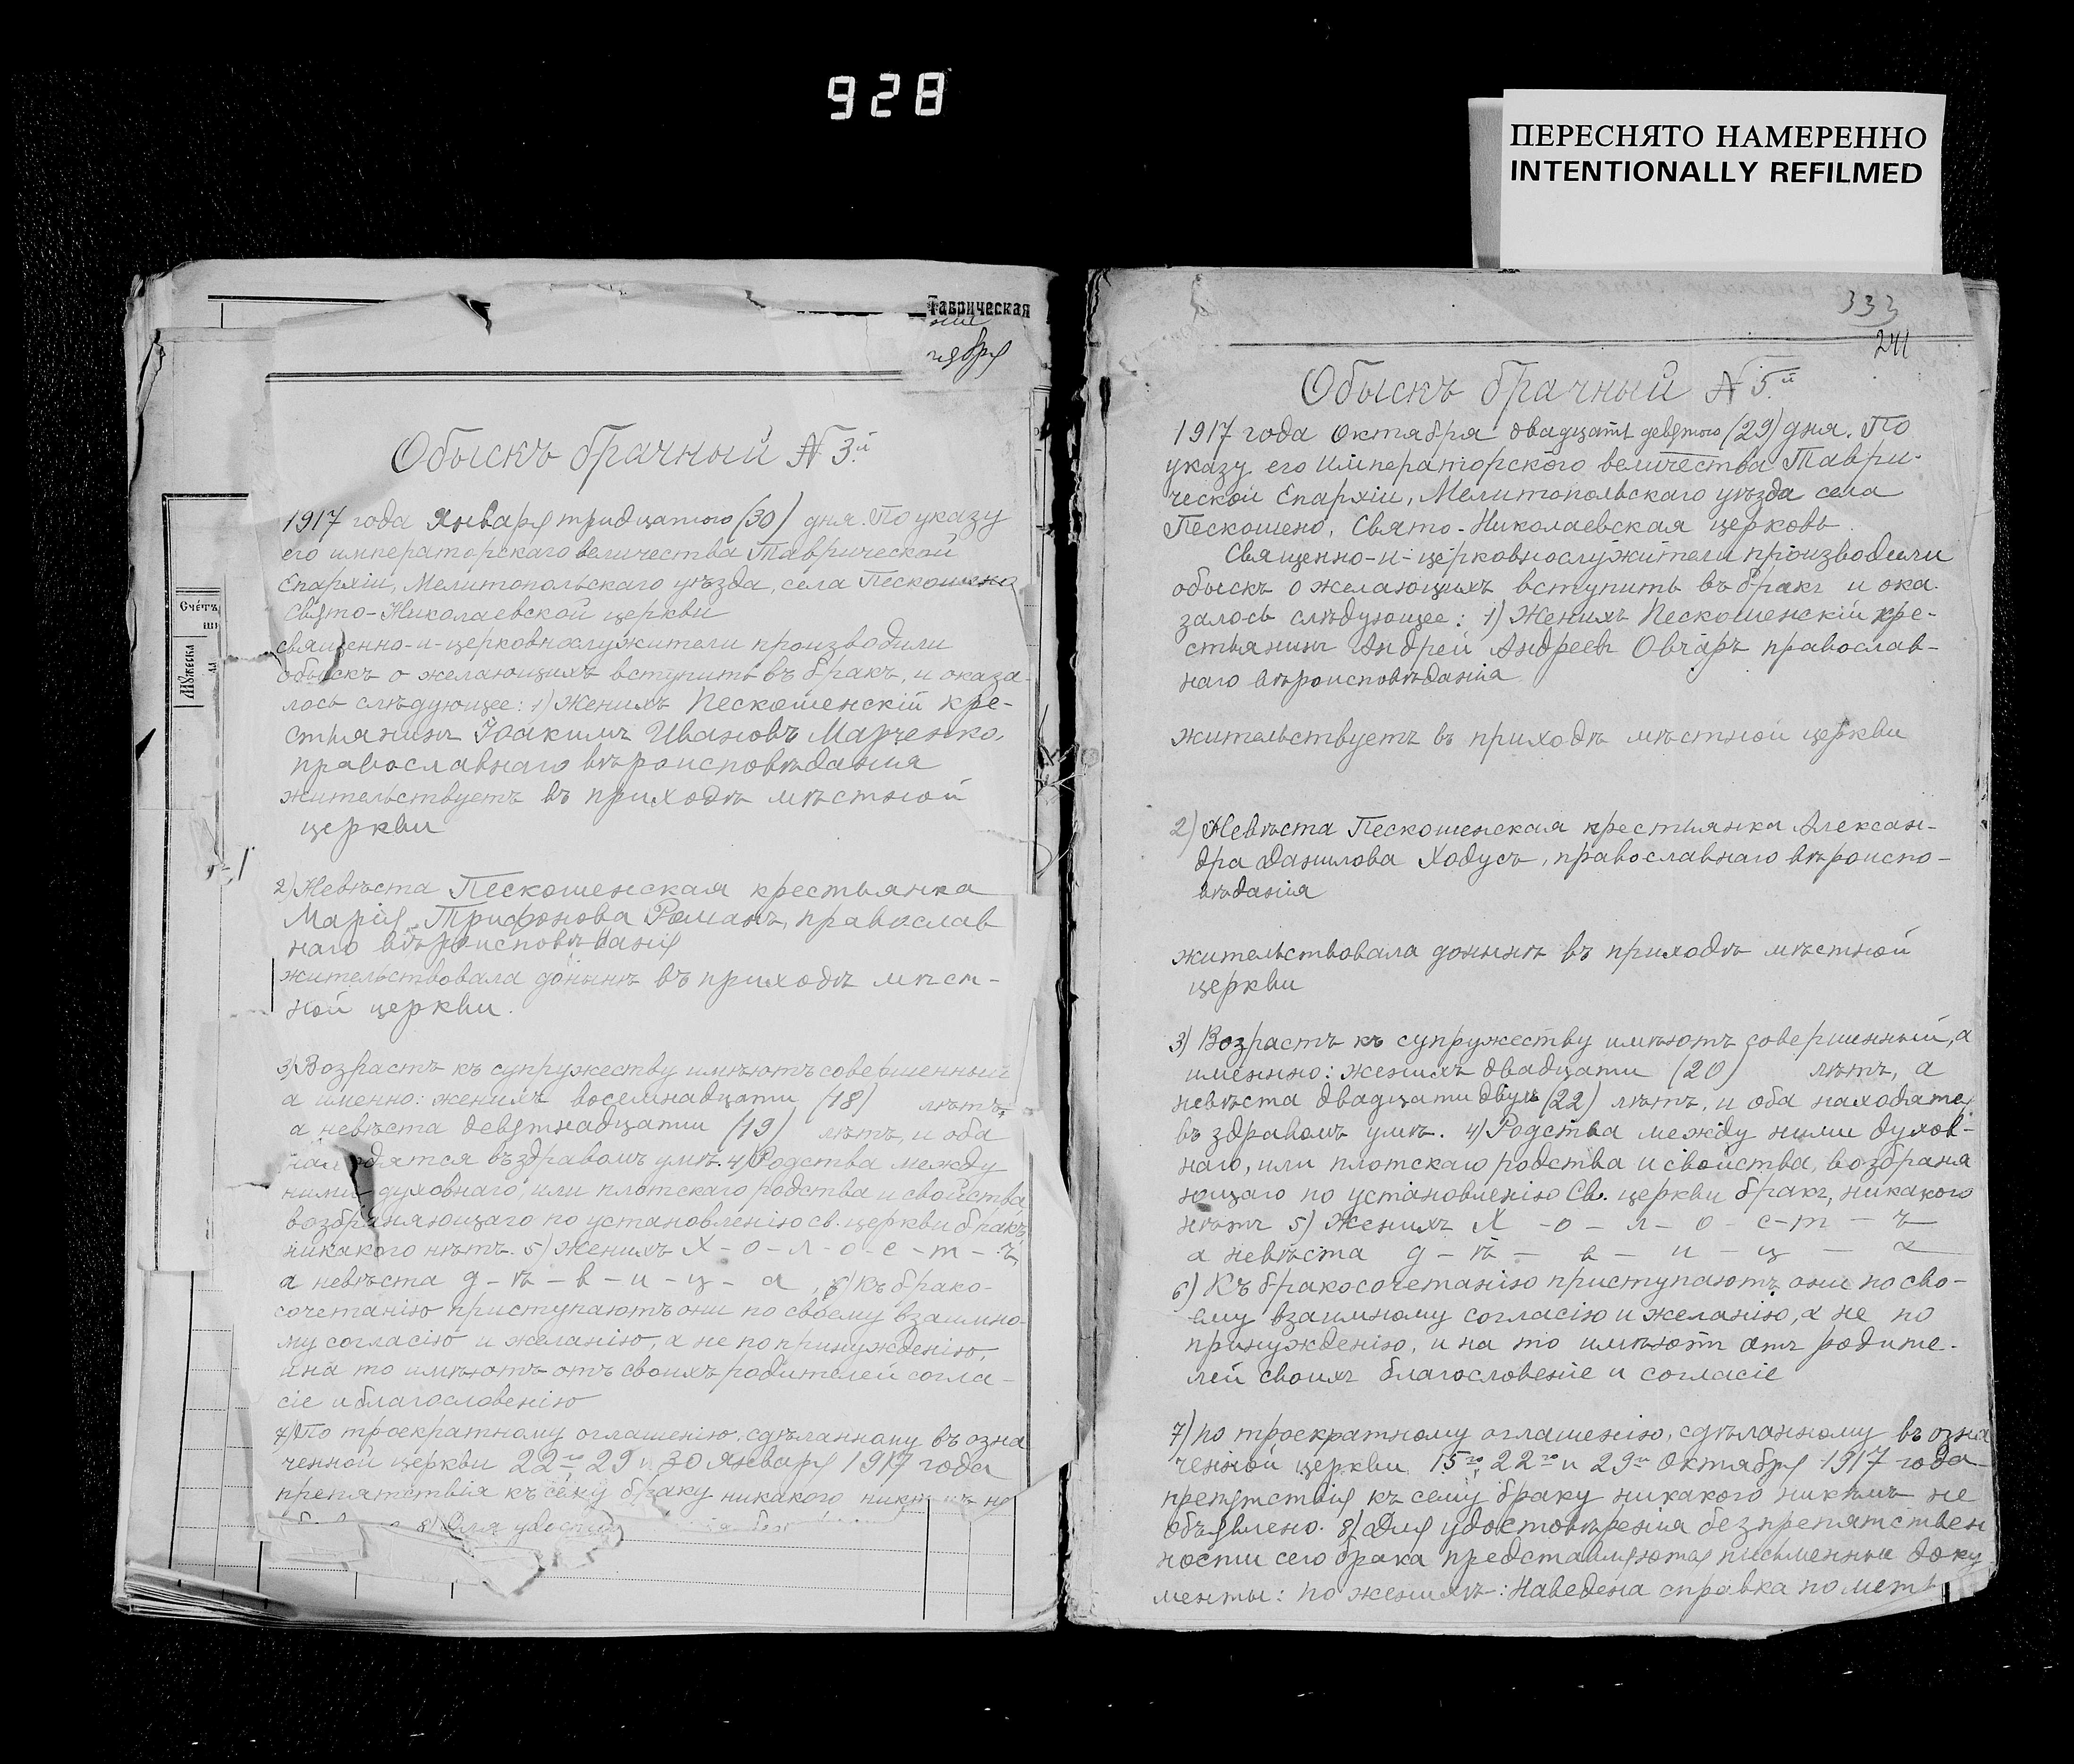 928
ПЕРЕСНЯТО НАМЕРЕННО
INTENTIONALLY REFILMED
Таврическая
Счетъ
Обыскъ брачный № 3.й
1917 года Января тридцатого (30) дня. По указу
его императорскаго величества Таврической
Епархіи, Мелитопольскаго уѣзда, села Пескошено
Свято-Николаевской церкви
священно-и-церковнослужители производили
обыскъ о желающихъ вступить въ бракъ, и оказа-
лось слѣдующее: 1) Женихъ Пескошенскій кре-
стьянинъ Іоакимъ Ивановъ Марченко,
православнаго вѣроисповѣданія
жительствуетъ въ приходѣ мѣстной
церкви
2) Невѣста Пескошенская крестьянка
Марія Трифонова Романъ, православ
наго вѣроисповѣданія
жительствовала донынѣ въ приходѣ мѣст-
ной церкви.
3) Возрастъ къ супружеству имѣютъ совершенный
а именно: женихъ восемнадцати (18) лѣтъ,
а невѣста девятнадцати (19) лѣтъ, и оба
находятся въ здравомъ умѣ. 4) Родства между
ними духовнаго, или плотскаго родства и свойства
возбраняющаго по установленію св. церкви бракъ,
никакого нѣтъ. 5) Женихъ Х-о-л-о-с-т-ъ,
а невѣста д-ѣ-в-и-ц-а, 6) Къ брако-
сочетанію приступаютъ они по своему взаимно-
му согласію и желанію, а не по принужденію,
и на то имѣютъ отъ своихъ родителей согла-
сіе и благословенію
7) По троекратному оглашенію, сдѣланному въ озна
ченной церкви 22го 29 и 30 Января 1917 года
препятствія къ сему браку никакого никѣмъ не
8) Для
333
241
Обыскъ брачный № 5.й
1917 года Октября двадцать девятого (29) дня. По
указу его императорского величества Таври-
ческой Епархіи, Мелитопольскаго уѣзда села
Пескошено, Свято-Николаевская церковь
Священно-и-церковнослужители производили
обыскъ о желающихъ вступить въ бракъ и ока-
залось слѣдующее: 1) Женихъ Пескошенскій кре-
стьянинъ Андрей Андреевъ Овчаръ православ-
наго вѣроисповѣданія
жительствуетъ въ приходѣ мѣстной церкви
2) Невѣста Пескошенская крестьянка Алексан-
дра Данилова Ходусъ, православнаго вѣроиспо-
вѣданія
жительствовала донынѣ въ приходѣ мѣстной
церкви
3) Возрастъ къ супружеству имѣютъ совершенный, а
именно: женихъ двадцати (20) лѣтъ, а
невѣста двадцати двухъ (22) лѣтъ, и оба находятся
въ здравомъ умѣ. 4) Родства между ними духов-
наго, или плотскаго родства и свойства, возбраня
ющаго по установленію Св. церкви бракъ, никакого
нѣтъ 5) Женихъ Х-о-л-о-с-т-ъ
а невѣста д-ѣ-в-и-ц-а
6) Къ бракосочетанію приступаютъ они по сво-
ему взаимному согласію и желанію, а не по
принужденію, и на то имѣютъ отъ родите-
лей своихъ благословеніе и согласіе
7) по троекратному оглашенію, сдѣланному въ озна
ченной церкви 15го, 22го и 29го Октября 1917 года
препятствія къ сему браку никакого никѣмъ не
объявлено. 8) Для удостовѣренія безпрепятствен
ности сего брака представляются письменные доку
менты: по женихѣ: Наведена справка по метъ